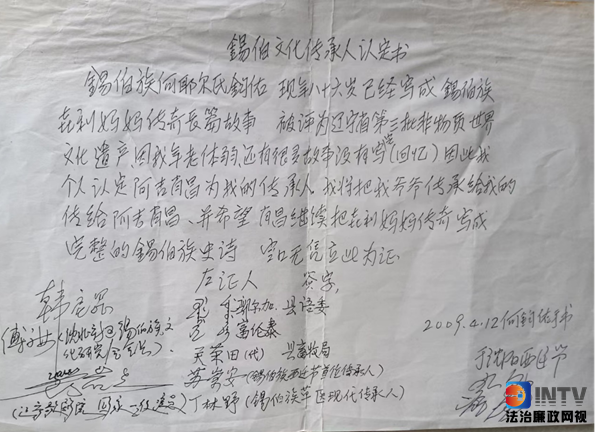 锡伯文化传承人认定书
锡伯族何耶尔氏钧佑 现年八十六岁已经写成锡伯族
喜利妈妈传奇长篇故事 被评为辽宁省第三批非物质世界
文化遗产因我年老体弱还有很多故事没有写完(回忆)因此我
个人认定阿吉肖昌为我的传承人 我将把我爷爷传承给我的
传给阿吉肖昌、并希望肖昌继续把喜利妈妈传奇写成
完整的锡伯族史诗 空口无凭立此为证
左证人 签字,
韩 县语委
富伦泰
2009.4.12何钧佑手书
傅 (沈北新区锡伯族文
化研究会会长)
吴荣田(代) 县畜牧局
于沈阳西迁节
苏崇安(锡伯族西迁节责任传承人)
(辽宁歌剧院 国家一级演员)丁林野(锡伯族萨满现代传承人)
INTV
法治廉政网视